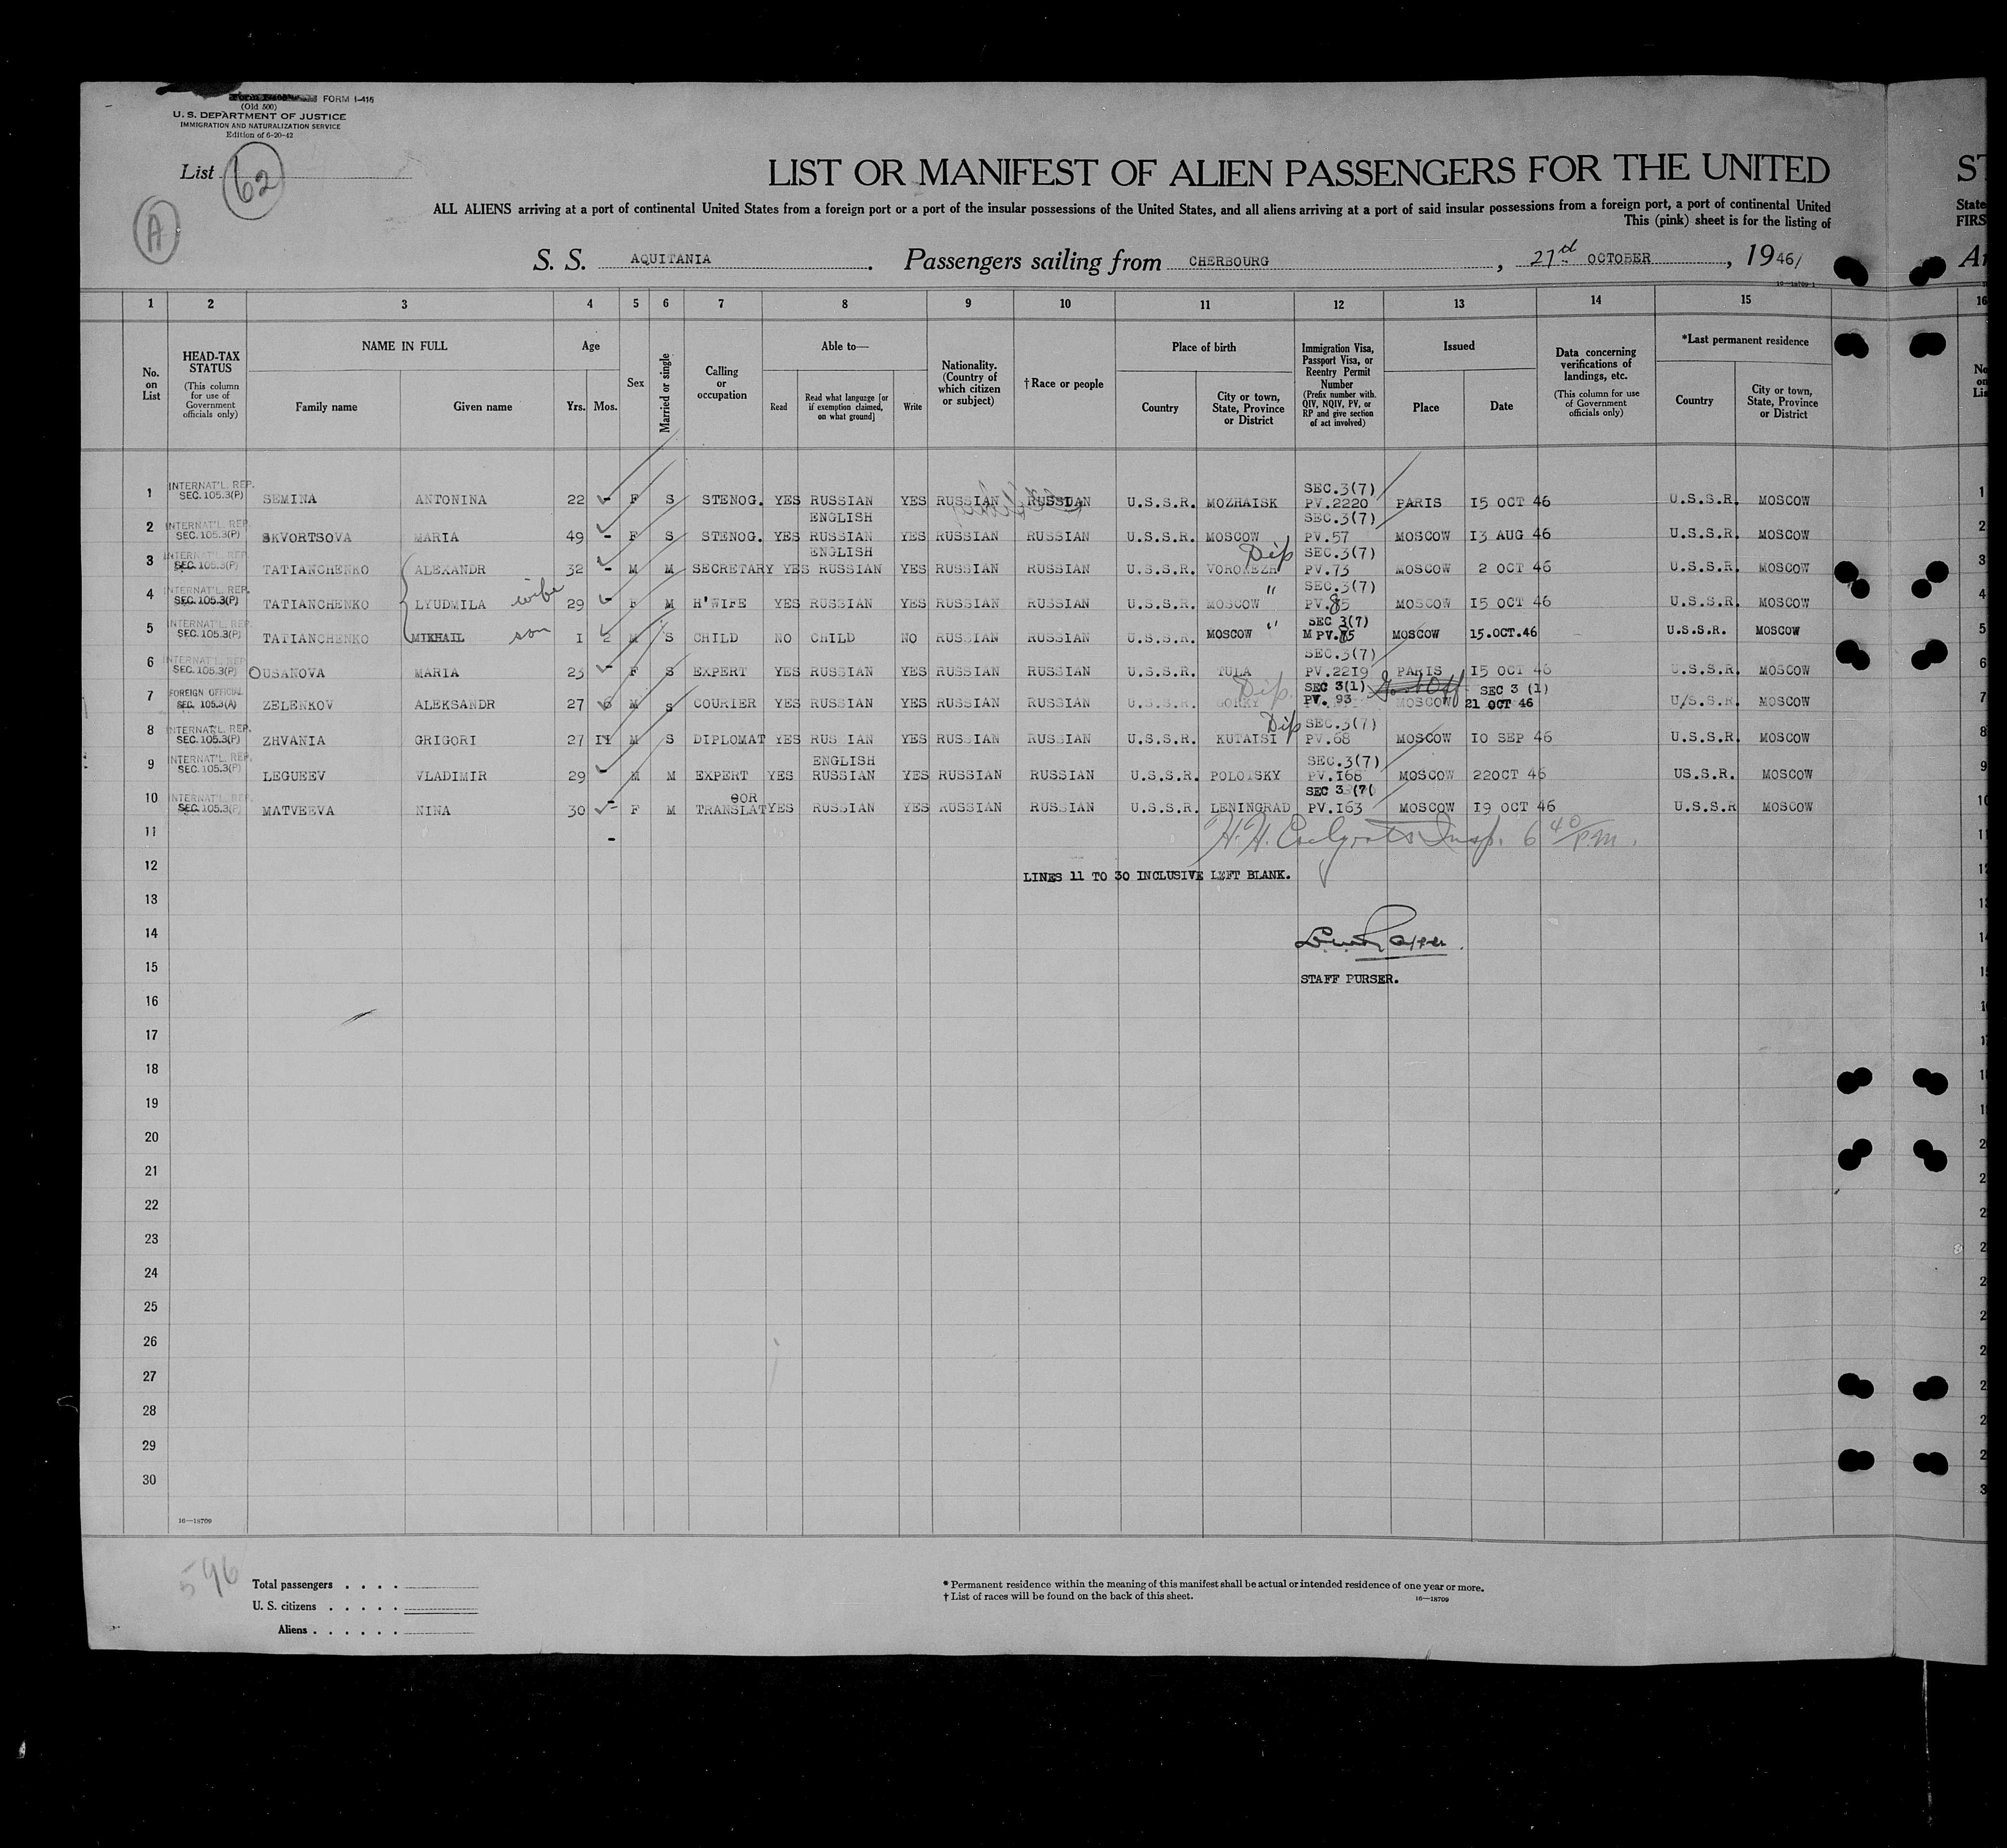 FORM I-415
(Old 500)
U. S. DEPARTMENT OF JUSTICE
IMMIGRATION AND NATURALIZATION SERVICE
Edition of 6-20-42
List 62
A
LIST OR MANIFEST OF ALIEN PASSENGERS FOR THE UNITED
ST
ALL ALIENS arriving at a port of continental United States from a foreign port or a port of the insular possessions of the United States, and all aliens arriving at a port of said insular possessions from a foreign port, a port of continental United
State
This (pink) sheet is for the listing of
FIRS
S. S. AQUITANIA. Passengers sailing from CHERBOURG, 27 OCTOBER, 1946
16—18709-1
1 2 3 4 5 6 7 8 9 10 11 12 13 14 15 16
No. on List
HEAD-TAX STATUS (This column for use of Government officials only)
NAME IN FULL Family name Given name
Age Yrs. Mos.
Sex
Married or single
Calling or occupation
Able to— Read Read what language [or if exemption claimed, on what ground] Write
Nationality. (Country of which citizen or subject)
†Race or people
Place of birth Country City or town, State, Province or District
Immigration Visa, Passport Visa, or Reentry Permit Number (Prefix number with QIV, NQIV, PV, or RP and give section of act involved)
Issued Place Date
Data concerning verifications of landings, etc. (This column for use of Government officials only)
*Last permanent residence Country City or town, State, Province or District
1 INTERNAT'L. REP. SEC. 105.3(P) SEMINA ANTONINA 22 - F S STENOG. YES RUSSIAN YES RUSSIAN RUSSIAN U.S.S.R. MOZHAISK SEC.3(7) PV.2220 PARIS I5 OCT 46 U.S.S.R. MOSCOW
2 INTERNAT'L. REP. SEC. 105.3(P) SKVORTSOVA MARIA 49 - F S STENOG. YES ENGLISH RUSSIAN YES RUSSIAN RUSSIAN U.S.S.R. MOSCOW SEC.3(7) PV.57 MOSCOW I3 AUG 46 U.S.S.R. MOSCOW
3 INTERNAT'L. REP. SEC. 105.3(P) TATIANCHENKO ALEXANDR 32 - M M SECRETARY YES ENGLISH RUSSIAN YES RUSSIAN RUSSIAN U.S.S.R. VORONEZH Dip SEC.3(7) PV.73 MOSCOW 2 OCT 46 U.S.S.R. MOSCOW
4 INTERNAT'L. REP. SEC. 105.3(P) TATIANCHENKO LYUDMILA wife 29 - F M H'WIFE YES RUSSIAN YES RUSSIAN RUSSIAN U.S.S.R. MOSCOW " SEC.3(7) PV.85 MOSCOW I5 OCT 46 U.S.S.R. MOSCOW
5 INTERNAT'L. REP. SEC. 105.3(P) TATIANCHENKO MIKHAIL son I 2 M S CHILD NO CHILD NO RUSSIAN RUSSIAN U.S.S.R. MOSCOW " SEC 3(7) PV.85 MOSCOW 15.OCT.46 U.S.S.R. MOSCOW
6 INTERNAT'L. REP. SEC. 105.3(P) OUSANOVA MARIA 23 - F S EXPERT YES RUSSIAN YES RUSSIAN RUSSIAN U.S.S.R. TULA SEC.3(7) PV.22I9 PARIS I5 OCT 46 U.S.S.R. MOSCOW
7 FOREIGN OFFICIAL SEC. 105.3(A) ZELENKOV ALEKSANDR 27 6 M S COURIER YES RUSSIAN YES RUSSIAN RUSSIAN U.S.S.R. GORKY Dip. SEC 3(1) PV. 93 MOSCOW SEC 3 (1) 21 OCT 46 U/S.S.R. MOSCOW
8 INTERNAT'L. REP. SEC. 105.3(P) ZHVANIA GRIGORI 27 II M S DIPLOMAT YES RUS IAN YES RUSSIAN RUSSIAN U.S.S.R. KUTAISI Dip SEC.3(7) PV.68 MOSCOW IO SEP 46 U.S.S.R. MOSCOW
9 INTERNAT'L. REP. SEC. 105.3(P) LEGUEEV VLADIMIR 29 - M M EXPERT YES ENGLISH RUSSIAN YES RUSSIAN RUSSIAN U.S.S.R. POLOTSKY SEC.3(7) PV.I68 MOSCOW 22OCT 46 US.S.R. MOSCOW
10 INTERNAT'L. REP. SEC. 105.3(P) MATVEEVA NINA 30 - F M TRANSLAT OR YES RUSSIAN YES RUSSIAN RUSSIAN U.S.S.R. LENINGRAD SEC 3 (7( PV.I63 MOSCOW I9 OCT 46 U.S.S.R MOSCOW
11 - Insp. 6 40/P.M.
12 LINES 11 TO 30 INCLUSIVE LEFT BLANK.
13
14
15 STAFF PURSER.
16
17
18
19
20
21
22
23
24
25
26
27
28
29
30
16—18709
596
Total passengers . . . .
U. S. citizens . . . . .
Aliens . . . . . .
* Permanent residence within the meaning of this manifest shall be actual or intended residence of one year or more.
† List of races will be found on the back of this sheet.
16—18709